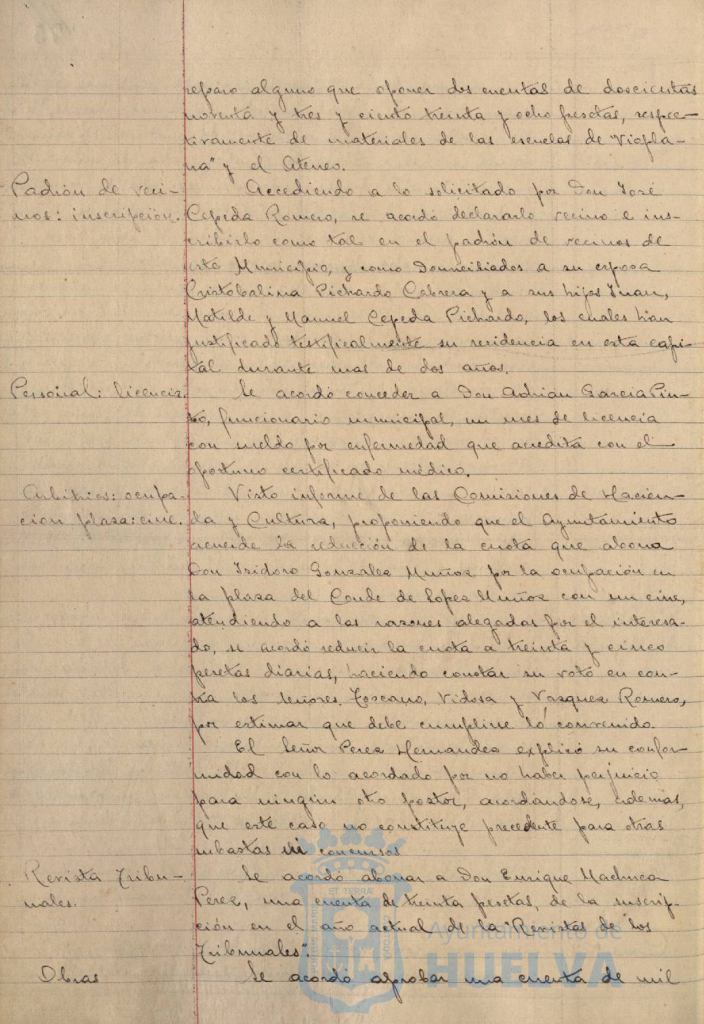 reparo alguno que oponer dos cuentas de doscientas
noventa y tres y ciento treinta y ocho pesetas, respec-
tivamente de materiales de las escuelas de "Viopla-
na" y el Ateneo.
Padrón de veci-
nos: inscripción.
Accediendo a lo solicitado por Don José
Cepeda Romero, se acordó declararlo vecino e ins-
cribirlo como tal en el padrón de vecinos de
este Municipio, y como domiciliados a su esposa
Cristobalina Pichardo Cabrera y a sus hijos Juan,
Matilde y Manuel Cepeda Pichardo, los cuales han
justificado testificalmente su residencia en esta capi-
tal durante mas de dos años.
Personal: licencia.
Se acordó conceder a Don Adrián García Pin-
to, funcionario municipal, un mes de licencia
con sueldo por enfermedad que acredita con el
oportuno certificado médico.
Arbitrios: ocupa-
cion plaza: cine.
Visto informe de las Comisiones de Hacien-
da y Cultura, proponiendo que el Ayuntamiento
acuerde la reducción de la cuota que abona
Don Isidoro Gonzalez Muñoz por la ocupación en
la plaza del Conde de Lopez Muñoz con un cine,
atendiendo a las razones alegadas por el interesa-
do, se acordó reducir la cuota a treinta y cinco
pesetas diarias, haciendo constar su voto en con-
tra los señores Toscano, Vidosa y Vazquez Romero,
por estimar que debe cumplirse lo convenido.
El Señor Perez Hernandez explicó su confor-
midad con lo acordado por no haber perjuicio
para ningún otro postor, acordándose, ademas,
que este caso no constituye precedente para otras
subastas ni concursos
Revista Tribu-
nales.
Se acordó abonar a Don Enrique Machuca
Perez, una cuenta de treinta pesetas, de la suscrip-
ción en el año actual de la "Revistas de los
Tribunales".
Obras
Se acordó aprobar una cuenta de mil
Ayuntamiento de
HUELVA